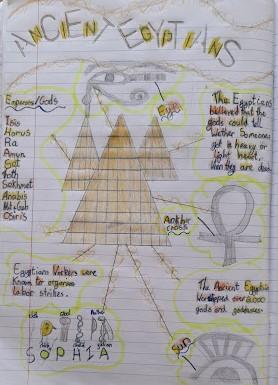 ANCIENT EGYPTIANS
Emperors/Gods
Isis
Horus
Ra
Amun
Thoth
Sekhmet
Anubis
Osiris
Eye
The Egyptians
believed that the
gods could tell
Wether Someone
got a heavy or
light heart.
When they are dead.
Ankh
cross
Egyptians Workers were
known for organise
labor strikes.
The Ancient Egyptian
Worshipped over
gods and goddesses.
SOPHIA
sun